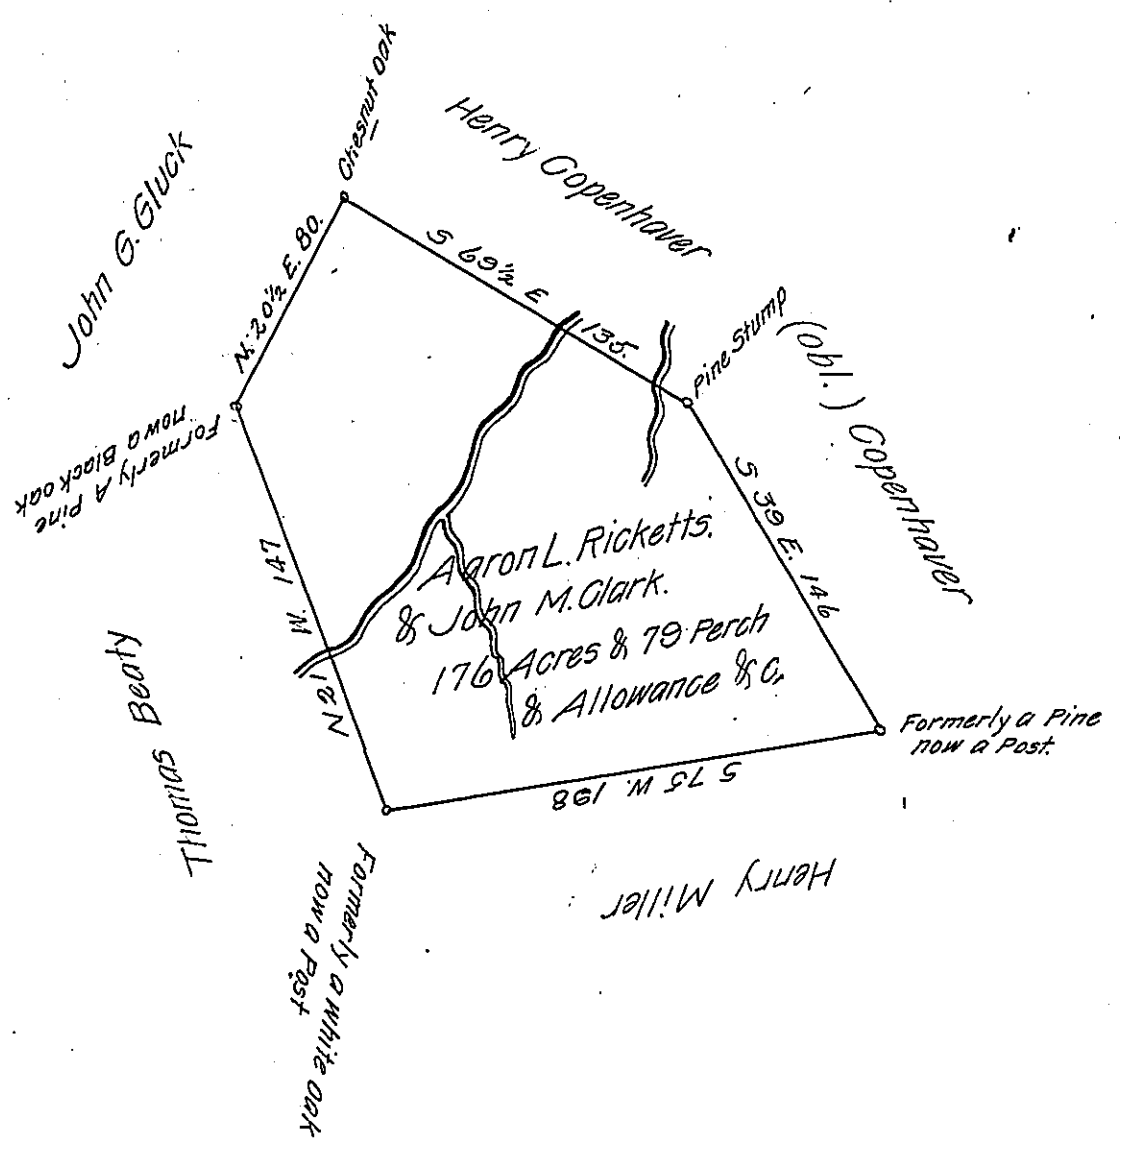 Chesnut Oak
Henry Copenhaver
John G. Gluck
N. 20½ E. 80.
S 69½ E 135.
Pine Stump
(obl.) Copenhaver
Formerly A Pine
now a Black oak
S 39 E. 146
N 21 W. 147
Aaron L. Ricketts.
& John M. Clark.
176 Acres & 79 Perch
& Allowance &c.
Thomas Beaty
Formerly a Pine
now a Post.
S 75 W. 198
Henry Miller
Formerly a white Oak
now a Post